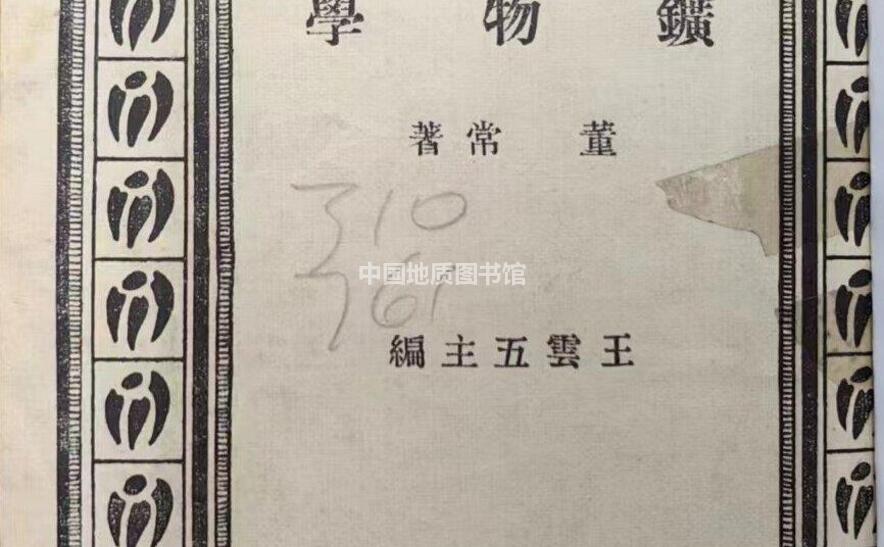 鑛物學
董常著
310
761
中国地质图书馆
王雲五主編